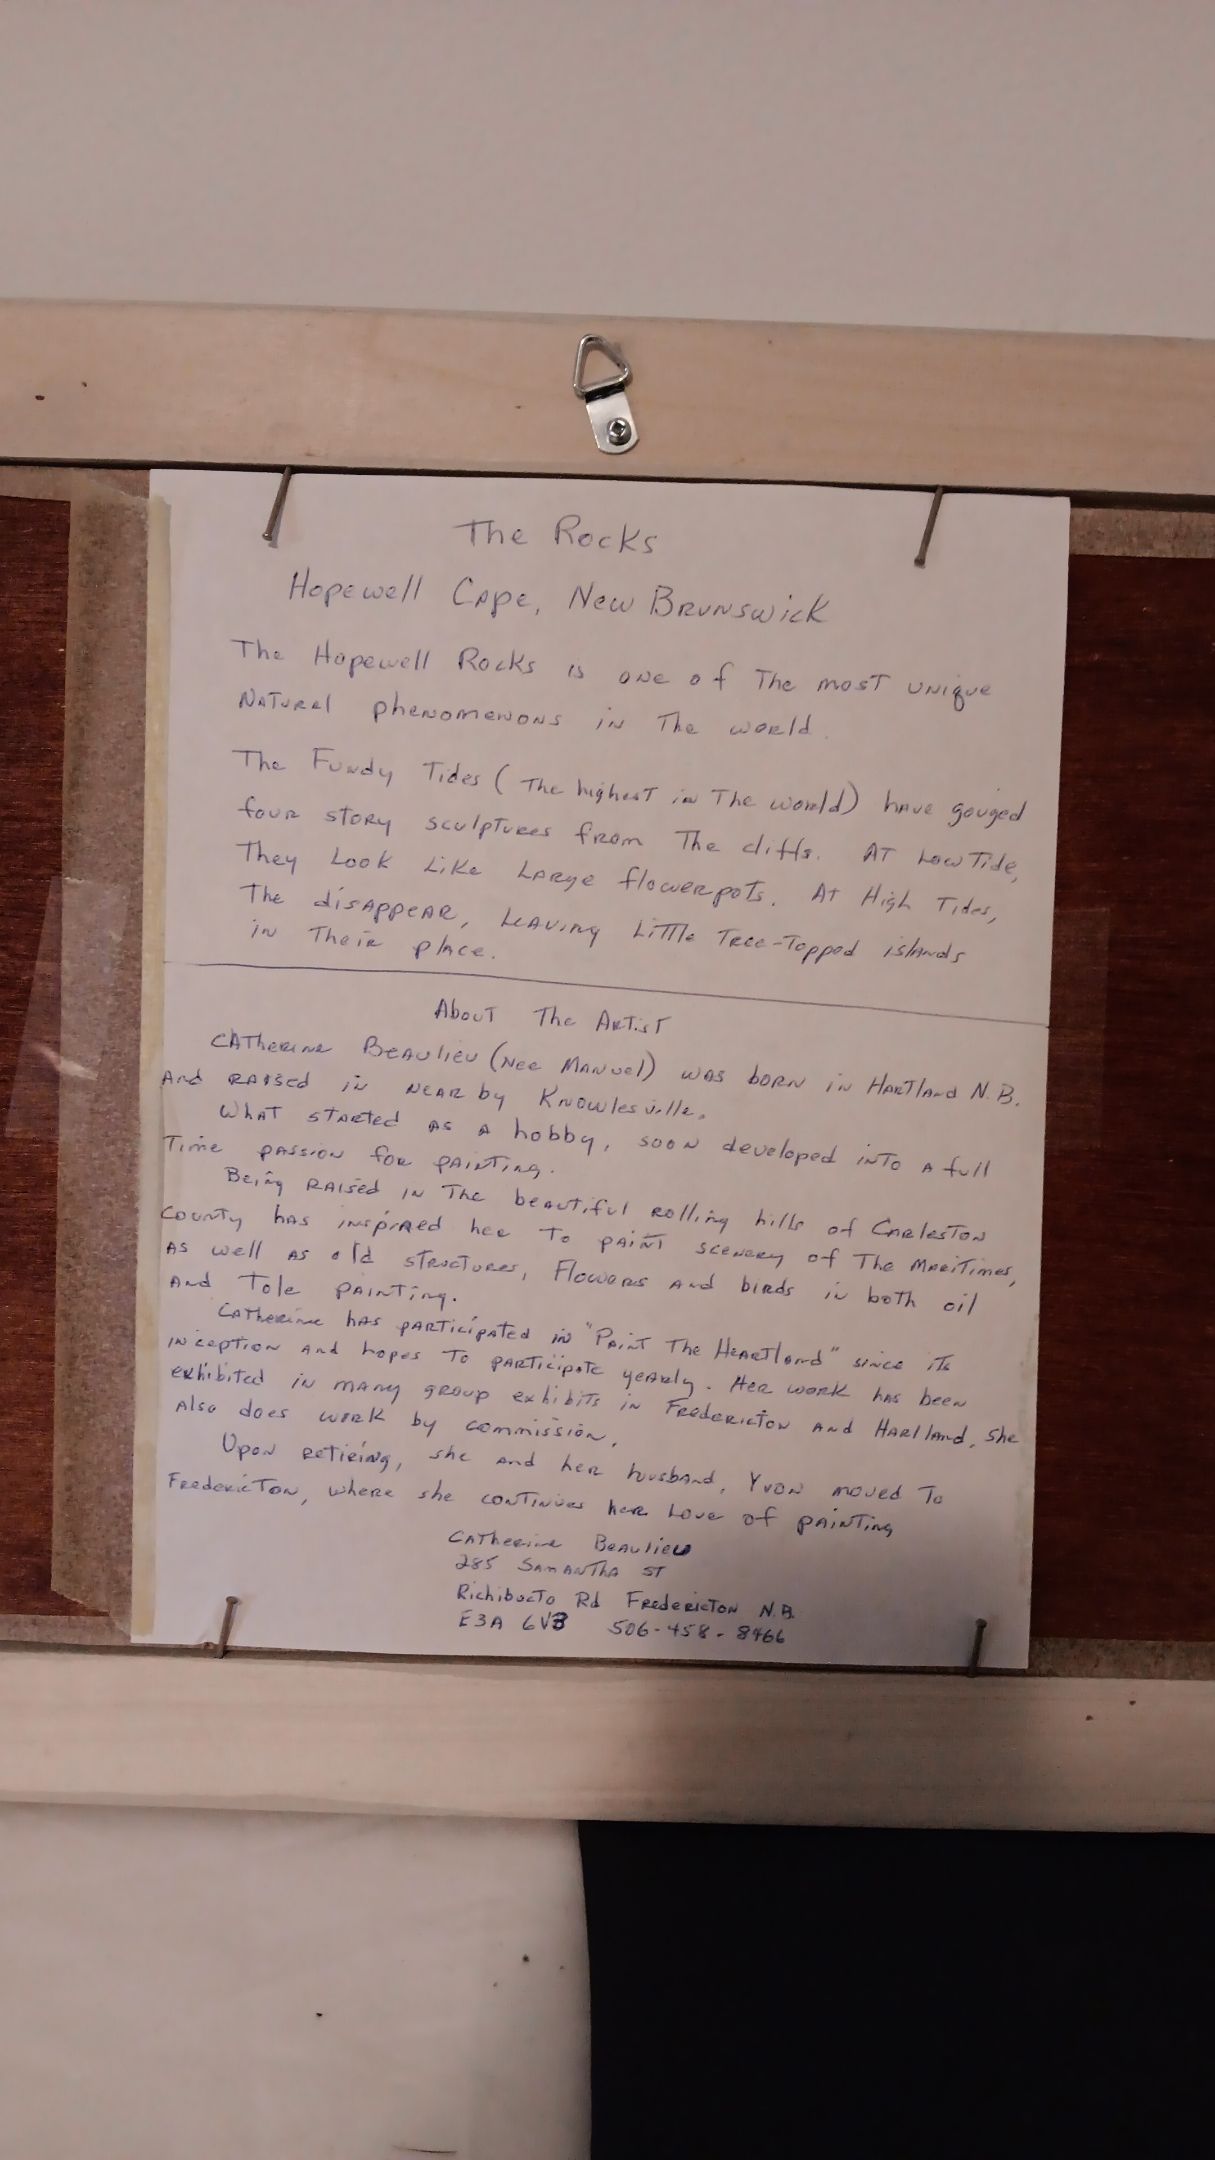 The Rocks
Hopewell Cape, New Brunswick
The Hopewell Rocks is one of The most unique
Natural phenomenons in The world.
The Fundy Tides (The highest in The world) have gouged
four story sculptures from The cliffs. At Low Tide,
They Look Like Large flowerpots. At High Tides,
The disappear, Leaving Little Tree-Topped islands
in Their place.
About The Artist
Catherine Beaulieu (Nee Manuel) was born in Hartland N.B.
And raised in near by Knowlesville.
What started as a hobby, soon developed into a full
Time passion for painting.
Being raised in The beautiful rolling hills of Carleston
County has inspired her To paint scenery of The Maritimes,
as well as old structures, Flowers and birds in both oil
and Tole painting.
Catherine has participated in "Paint The Heartland" since its
inception and hopes To participate yearly. Her work has been
exhibited in many group exhibits in Fredericton and Hartland. She
Also does work by commission.
Upon retiring, she and her husband, Yvon moved To
Fredericton, where she continues her Love of painting
Catherine Beaulieu
285 Samantha St
Richibucto Rd Fredericton N.B.
E3A 6V3 506-458-8466